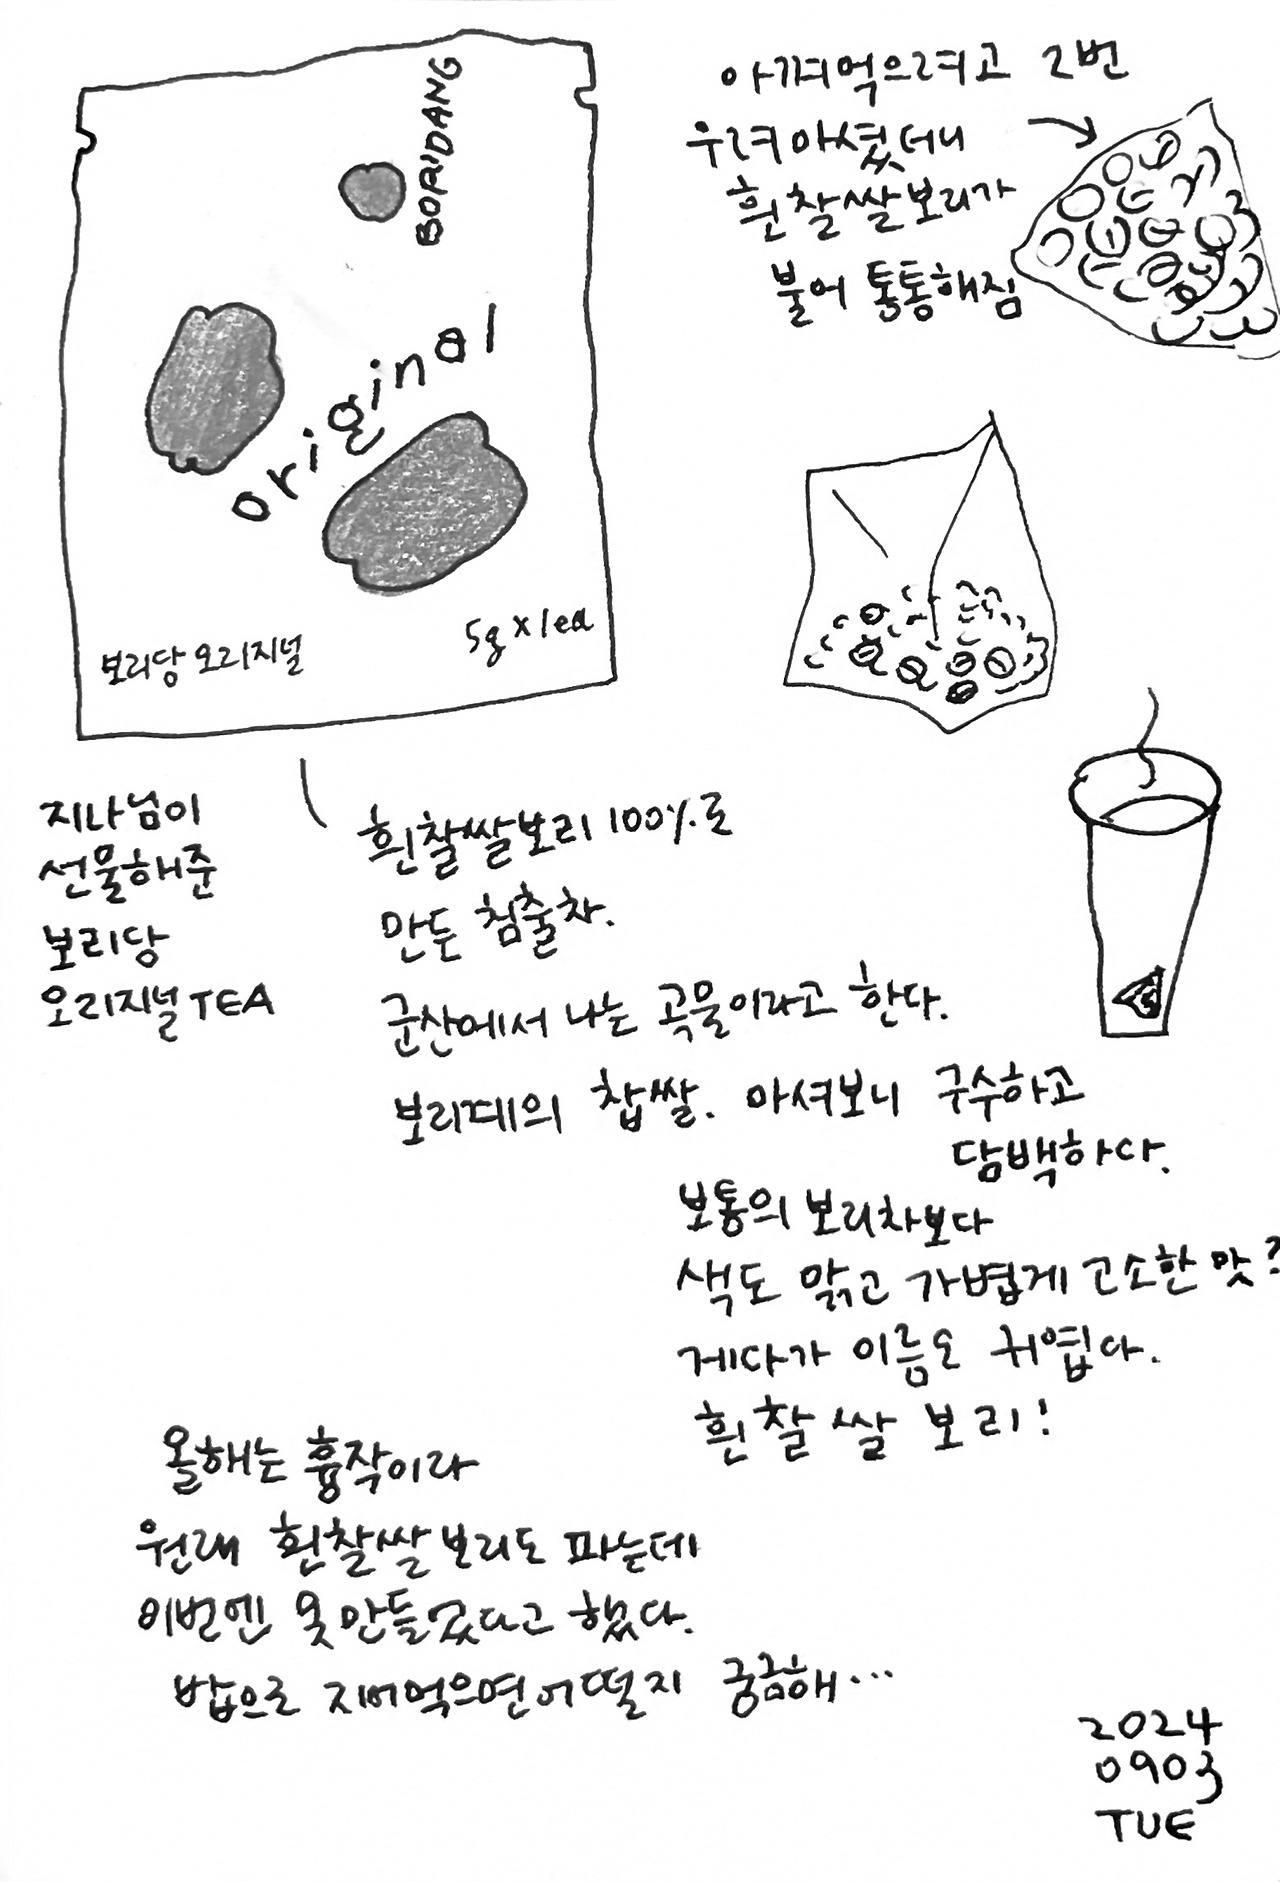 BORIDANG
original
보리당 오리지널
5g x 1ea
아껴먹으려고 2번
우려마셨더니
흰찰쌀보리가
불어 통통해짐
지나님이
선물해준
보리당
오리지널 TEA
흰찰쌀보리 100%로
만든 침출차.
군산에서 나는 곡물이라고 한다.
보리계의 찹쌀. 마셔보니 구수하고
담백하다.
보통의 보리차보다
색도 맑고 가볍게 고소한 맛?
게다가 이름도 귀엽다.
흰찰쌀 보리!
올해는 흉작이라
원래 흰찰쌀보리도 파는데
이번엔 못만들었다고 했다.
밥으로 지어먹으면 어떨지 궁금해...
2024
0903
TUE